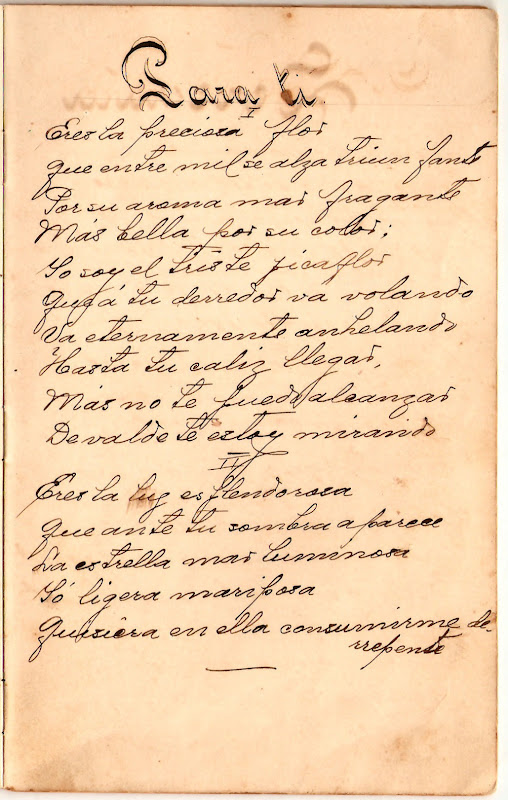 Para ti.
I
Eres la preciosa flor
que entre mil se alza triunfante
Por su aroma mas fragante
Mas bella por su color;
Yo soy el triste picaflor
Que á tu derredor va volando
Va eternamente anhelando
Hasta tu caliz llegar,
Mas no te puedo alcanzar
De valde te estoy mirando
II
Eres la luz esplendorosa
que ante tu sombra aparece
La estrella mas luminosa
Yó ligera mariposa
quisiera en ella consumirme de-
rrepente